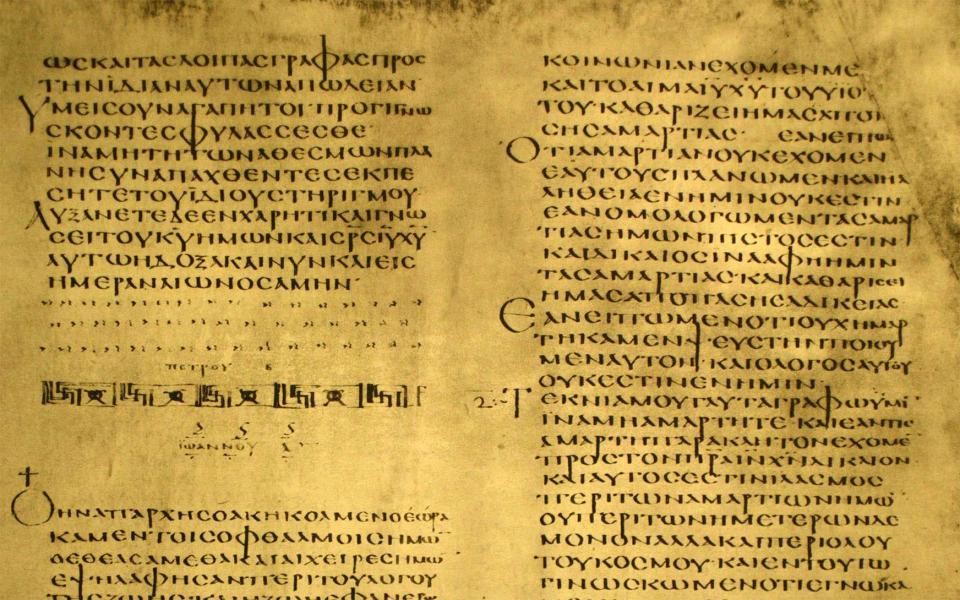 ΩϹΚΑΙΤΑϹΛΟΙΠΑϹΓΡΑΦΑϹΠΡΟϹ
ΤΗΝΙΔΙΑΝΑΥΤΩΝΑΠΩΛΕΙΑΝ
ΥΜΕΙϹΟΥΝΑΓΑΠΗΤΟΙ·ΠΡΟΓΙΝΩ
ϹΚΟΝΤΕϹΦΥΛΑϹϹΕϹΘΕ·
ΙΝΑΜΗΤΗΤΩΝΑΘΕϹΜΩΝΠΛΑ
ΝΗϹΥΝΑΠΑΧΘΕΝΤΕϹΕΚΠΕ
ϹΗΤΕΤΟΥΪΔΙΟΥϹΤΗΡΙΓΜΟΥ·
ΑΥΞΑΝΕΤΕΔΕΕΝΧΑΡΗΤΙΚΑΙΓΝΩ
ϹΕΙΤΟΥΚ̅Υ̅ΗΜΩΝΚΑΙϹ̅Ρ̅Ϲ̅Ι̅Υ̅Χ̅Υ̅
ΑΥΤΩΗΔΟΞΑΚΑΙΝΥΝΚΑΙΕΙϹ
ΗΜΕΡΑΝΑΙΩΝΟϹΑΜΗΝ·
ΠΕΤΡΟΥ Β
ΙΩΑΝΝΟΥ Α
ΟΗΝΑΠΑΡΧΗϹΟΑΚΗΚΟΑΜΕΝΟΕΩΡΑ
ΚΑΜΕΝΤΟΙϹΟΦΘΑΛΜΟΙϹΗΜΩ̅
ΟΕΘΕΑϹΑΜΕΘΑΚΑΙΑΙΧΕΙΡΕϹΗΜΩ̅
ΕΨΗΛΑΦΗϹΑΝΠΕΡΙΤΟΥΛΟΓΟΥ
ΚΟΙΝΩΝΙΑΝΕΧΟΜΕΝΜΕ
ΚΑΙΤΟΑΙΜΑΙ̅Υ̅Χ̅Υ̅ΤΟΥΥΙΟ
ΤΟΥ·ΚΑΘΑΡΙΖΕΙΗΜΑϹΑΠΟΠΑ
ϹΗϹΑΜΑΡΤΙΑϹ· ΕΑΝΕΙΠΩΜΕ
ΟΤΙΑΜΑΡΤΙΑΝΟΥΚΕΧΟΜΕΝ
ΕΑΥΤΟΥϹΠΛΑΝΩΜΕΝΚΑΙΗΑ
ΛΗΘΕΙΑΕΝΗΜΙΝΟΥΚΕϹΤΙΝ
ΕΑΝΟΜΟΛΟΓΩΜΕΝΤΑϹΑΜΑΡ
ΤΙΑϹΗΜΩΝΠΙϹΤΟϹΕϹΤΙΝ
ΚΑΙΔΙΚΑΙΟϹΙΝΑΑΦΗΗΜΙΝ
ΤΑϹΑΜΑΡΤΙΑϹ·ΚΑΙΚΑΘΑΡΙϹΕΙ
ΗΜΑϹΑΠΟΠΑϹΗϹΑΔΙΚΕΙΑϹ
ΕΑΝΕΙΠΩΜΕΝΟΤΙΟΥΧΗΜΑΡ
ΤΗΚΑΜΕΝ·ΨΕΥϹΤΗΝΠΟΙΟΥ
ΜΕΝΑΥΤΟΝ·ΚΑΙΟΛΟΓΟϹΑΥΤΟΥ
ΟΥΚΕϹΤΙΝΕΝΗΜΙΝ·
ΤΕΚΝΙΑΜΟΥΤΑΥΤΑΓΡΑΦΩΥΜΙ̅
ΙΝΑΜΗΑΜΑΡΤΗΤΕ·ΚΑΙΕΑΝΤΙϹ
ΑΜΑΡΤΗΠΑΡΑΚΛΗΤΟΝΕΧΟΜΕ̅
ΠΡΟϹΤΟΝΠ̅Ρ̅Α̅Ι̅Ν̅Χ̅Ν̅ΔΙΚΑΙΟΝ
ΚΑΙΑΥΤΟϹΕϹΤΙΝΙΛΑϹΜΟϹ
ΠΕΡΙΤΩΝΑΜΑΡΤΙΩΝΗΜΩ̅
ΟΥΠΕΡΙΤΩΝΗΜΕΤΕΡΩΝΔΕ
ΜΟΝΟΝΑΛΛΑΚΑΙΠΕΡΙΟΛΟΥ
ΤΟΥΚΟϹΜΟΥ·ΚΑΙΕΝΤΟΥΤΩ
ΓΙΝΩϹΚΩΜΕΝΟΤΙΕΓΝΩΚΑ